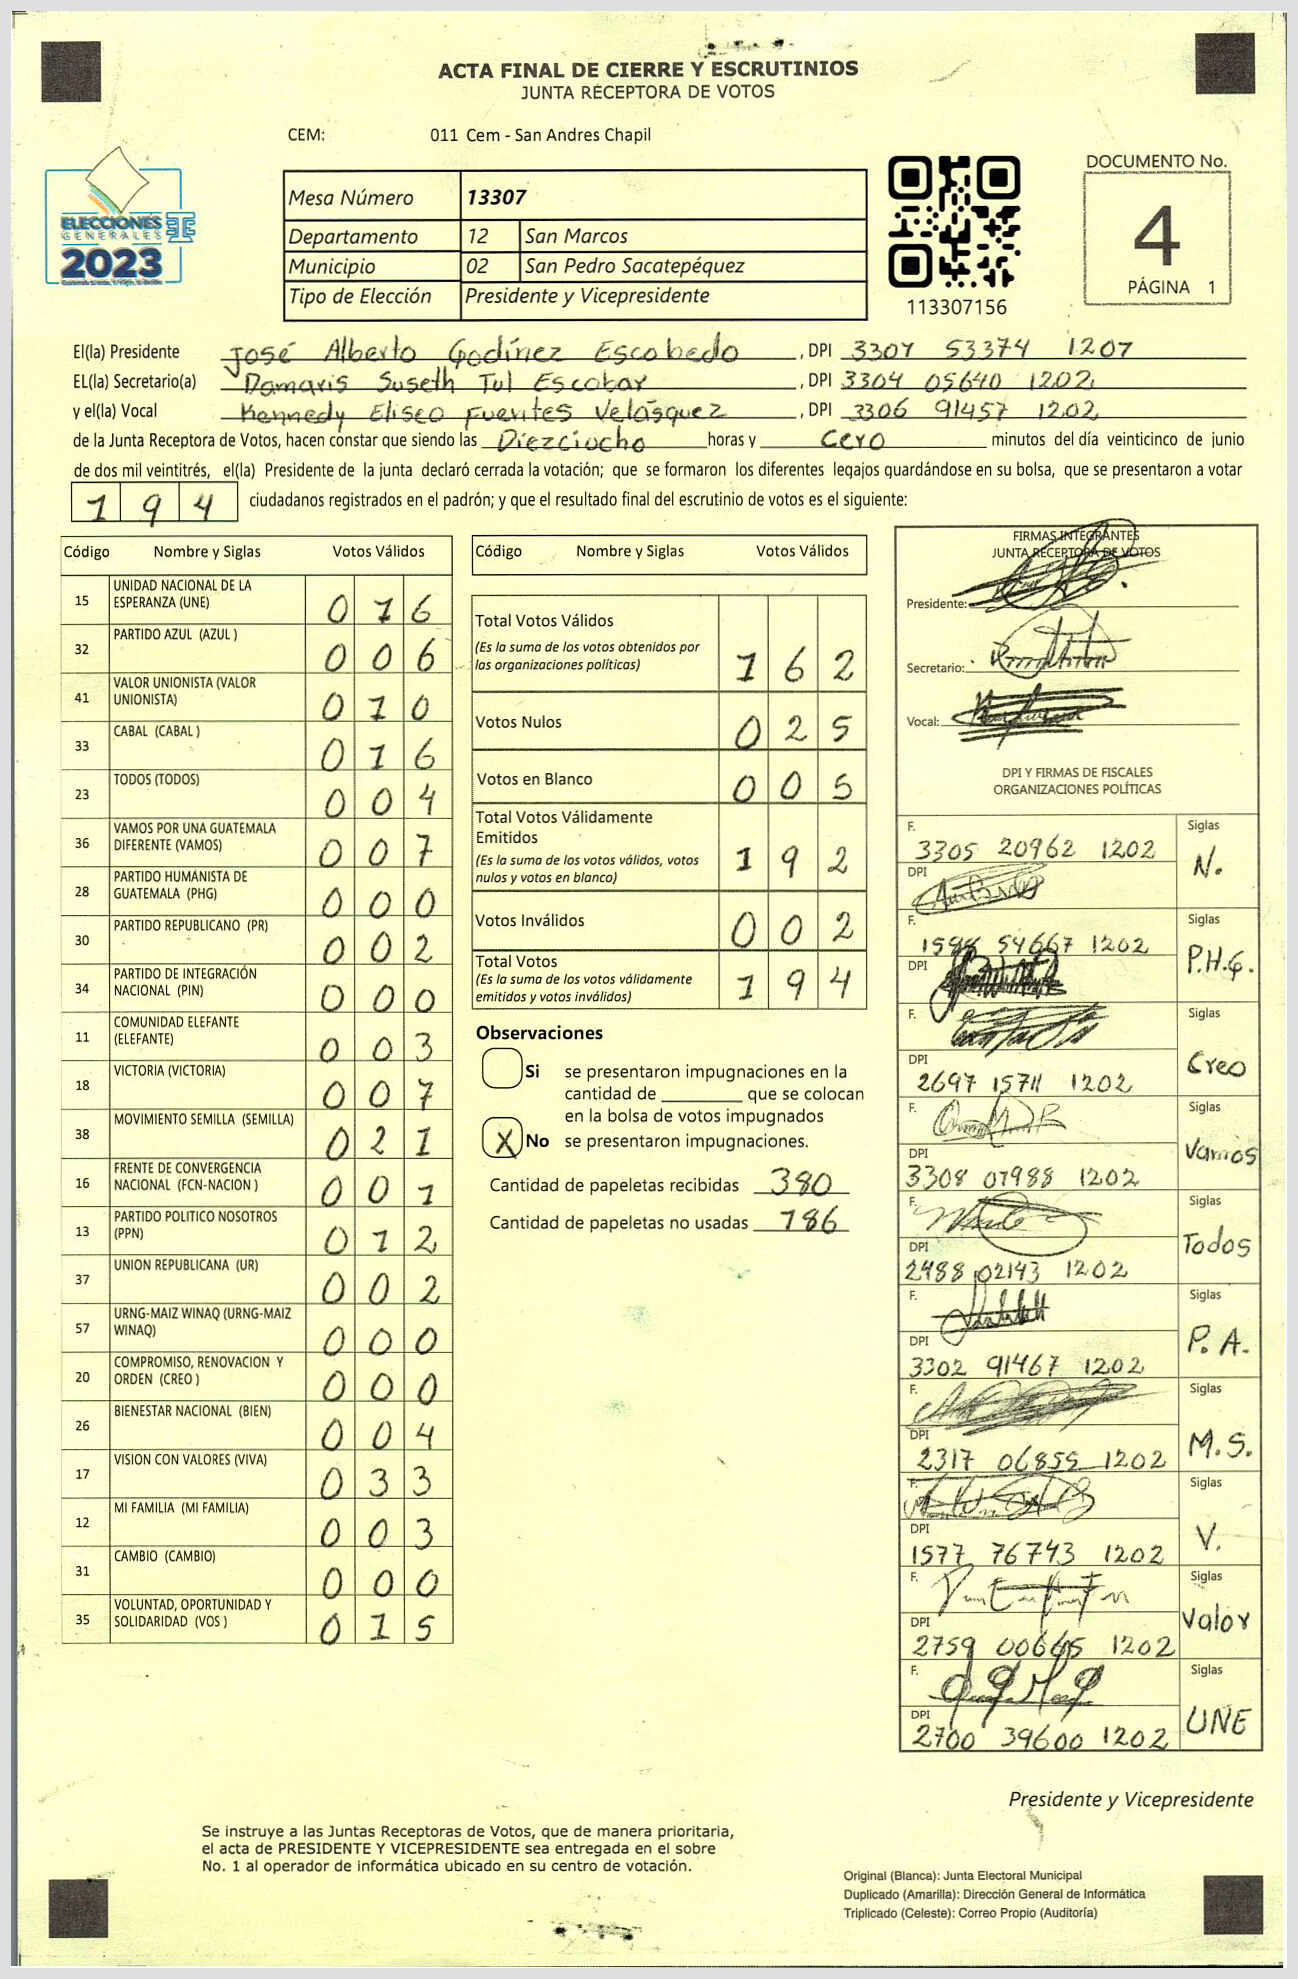 ACTA FINAL DE CIERRE Y ESCRUTINIOS
JUNTA RECEPTORA DE VOTOS
CEM: 011 Cem - San Andres Chapil
ELECCIONES
GENERALES
2023
Mesa Número 13307
Departamento 12 San Marcos
Municipio 02 San Pedro Sacatepéquez
Tipo de Elección Presidente y Vicepresidente
113307156
DOCUMENTO No.
4
PÁGINA 1
El(la) Presidente José Alberto Godínez Escobedo, DPI 3307 53374 1207
EL(la) Secretario(a) Damaris Suseth Tul Escobar, DPI 3304 05640 1202
y el(la) Vocal Kennedy Eliseo Fuentes Velásquez, DPI 3306 91457 1202
de la Junta Receptora de Votos, hacen constar que siendo las Dieziocho horas y Cero minutos del día veinticinco de junio
de dos mil veintitrés, el(la) Presidente de la junta declaró cerrada la votación; que se formaron los diferentes legajos guardándose en su bolsa, que se presentaron a votar
194 ciudadanos registrados en el padrón; y que el resultado final del escrutinio de votos es el siguiente:
Código Nombre y Siglas Votos Válidos
15 UNIDAD NACIONAL DE LA ESPERANZA (UNE) 016
32 PARTIDO AZUL (AZUL ) 006
41 VALOR UNIONISTA (VALOR UNIONISTA) 010
33 CABAL (CABAL ) 016
23 TODOS (TODOS) 004
36 VAMOS POR UNA GUATEMALA DIFERENTE (VAMOS) 007
28 PARTIDO HUMANISTA DE GUATEMALA (PHG) 000
30 PARTIDO REPUBLICANO (PR) 002
34 PARTIDO DE INTEGRACIÓN NACIONAL (PIN) 000
11 COMUNIDAD ELEFANTE (ELEFANTE) 003
18 VICTORIA (VICTORIA) 007
38 MOVIMIENTO SEMILLA (SEMILLA) 021
16 FRENTE DE CONVERGENCIA NACIONAL (FCN-NACION ) 001
13 PARTIDO POLITICO NOSOTROS (PPN) 012
37 UNION REPUBLICANA (UR) 002
57 URNG-MAIZ WINAQ (URNG-MAIZ WINAQ) 000
20 COMPROMISO, RENOVACION Y ORDEN (CREO ) 000
26 BIENESTAR NACIONAL (BIEN) 004
17 VISION CON VALORES (VIVA) 033
12 MI FAMILIA (MI FAMILIA) 003
31 CAMBIO (CAMBIO) 000
35 VOLUNTAD, OPORTUNIDAD Y SOLIDARIDAD (VOS ) 015
Código Nombre y Siglas Votos Válidos
Total Votos Válidos 162
(Es la suma de los votos obtenidos por las organizaciones políticas)
Votos Nulos 025
Votos en Blanco 005
Total Votos Válidamente Emitidos 192
(Es la suma de los votos válidos, votos nulos y votos en blanco)
Votos Inválidos 002
Total Votos 194
(Es la suma de los votos válidamente emitidos y votos inválidos)
Observaciones
Si se presentaron impugnaciones en la
cantidad de ________ que se colocan
en la bolsa de votos impugnados
X No se presentaron impugnaciones.
Cantidad de papeletas recibidas 380
Cantidad de papeletas no usadas 186
FIRMAS INTEGRANTES
JUNTA RECEPTORA DE VOTOS
Presidente:
Secretario:
Vocal:
DPI Y FIRMAS DE FISCALES
ORGANIZACIONES POLÍTICAS
F. 3305 20962 1202 Siglas
DPI N.
F. 54667 1202 Siglas
DPI P.H.G.
F. Siglas
DPI 2697 15711 1202 Creo
F. Siglas
DPI 3308 07988 1202 Vamos
F. Siglas
DPI 2488 02143 1202 Todos
F. Siglas
DPI 3302 91467 1202 P. A.
F. Siglas
DPI 2317 06855 1202 M.S.
F. Siglas
DPI 1577 76743 1202 V.
F. Siglas
DPI 2759 00665 1202 Valor
F. Siglas
DPI 2700 39600 1202 UNE
Presidente y Vicepresidente
Se instruye a las Juntas Receptoras de Votos, que de manera prioritaria,
el acta de PRESIDENTE Y VICEPRESIDENTE sea entregada en el sobre
No. 1 al operador de informática ubicado en su centro de votación.
Original (Blanca): Junta Electoral Municipal
Duplicado (Amarilla): Dirección General de Informática
Triplicado (Celeste): Correo Propio (Auditoría)